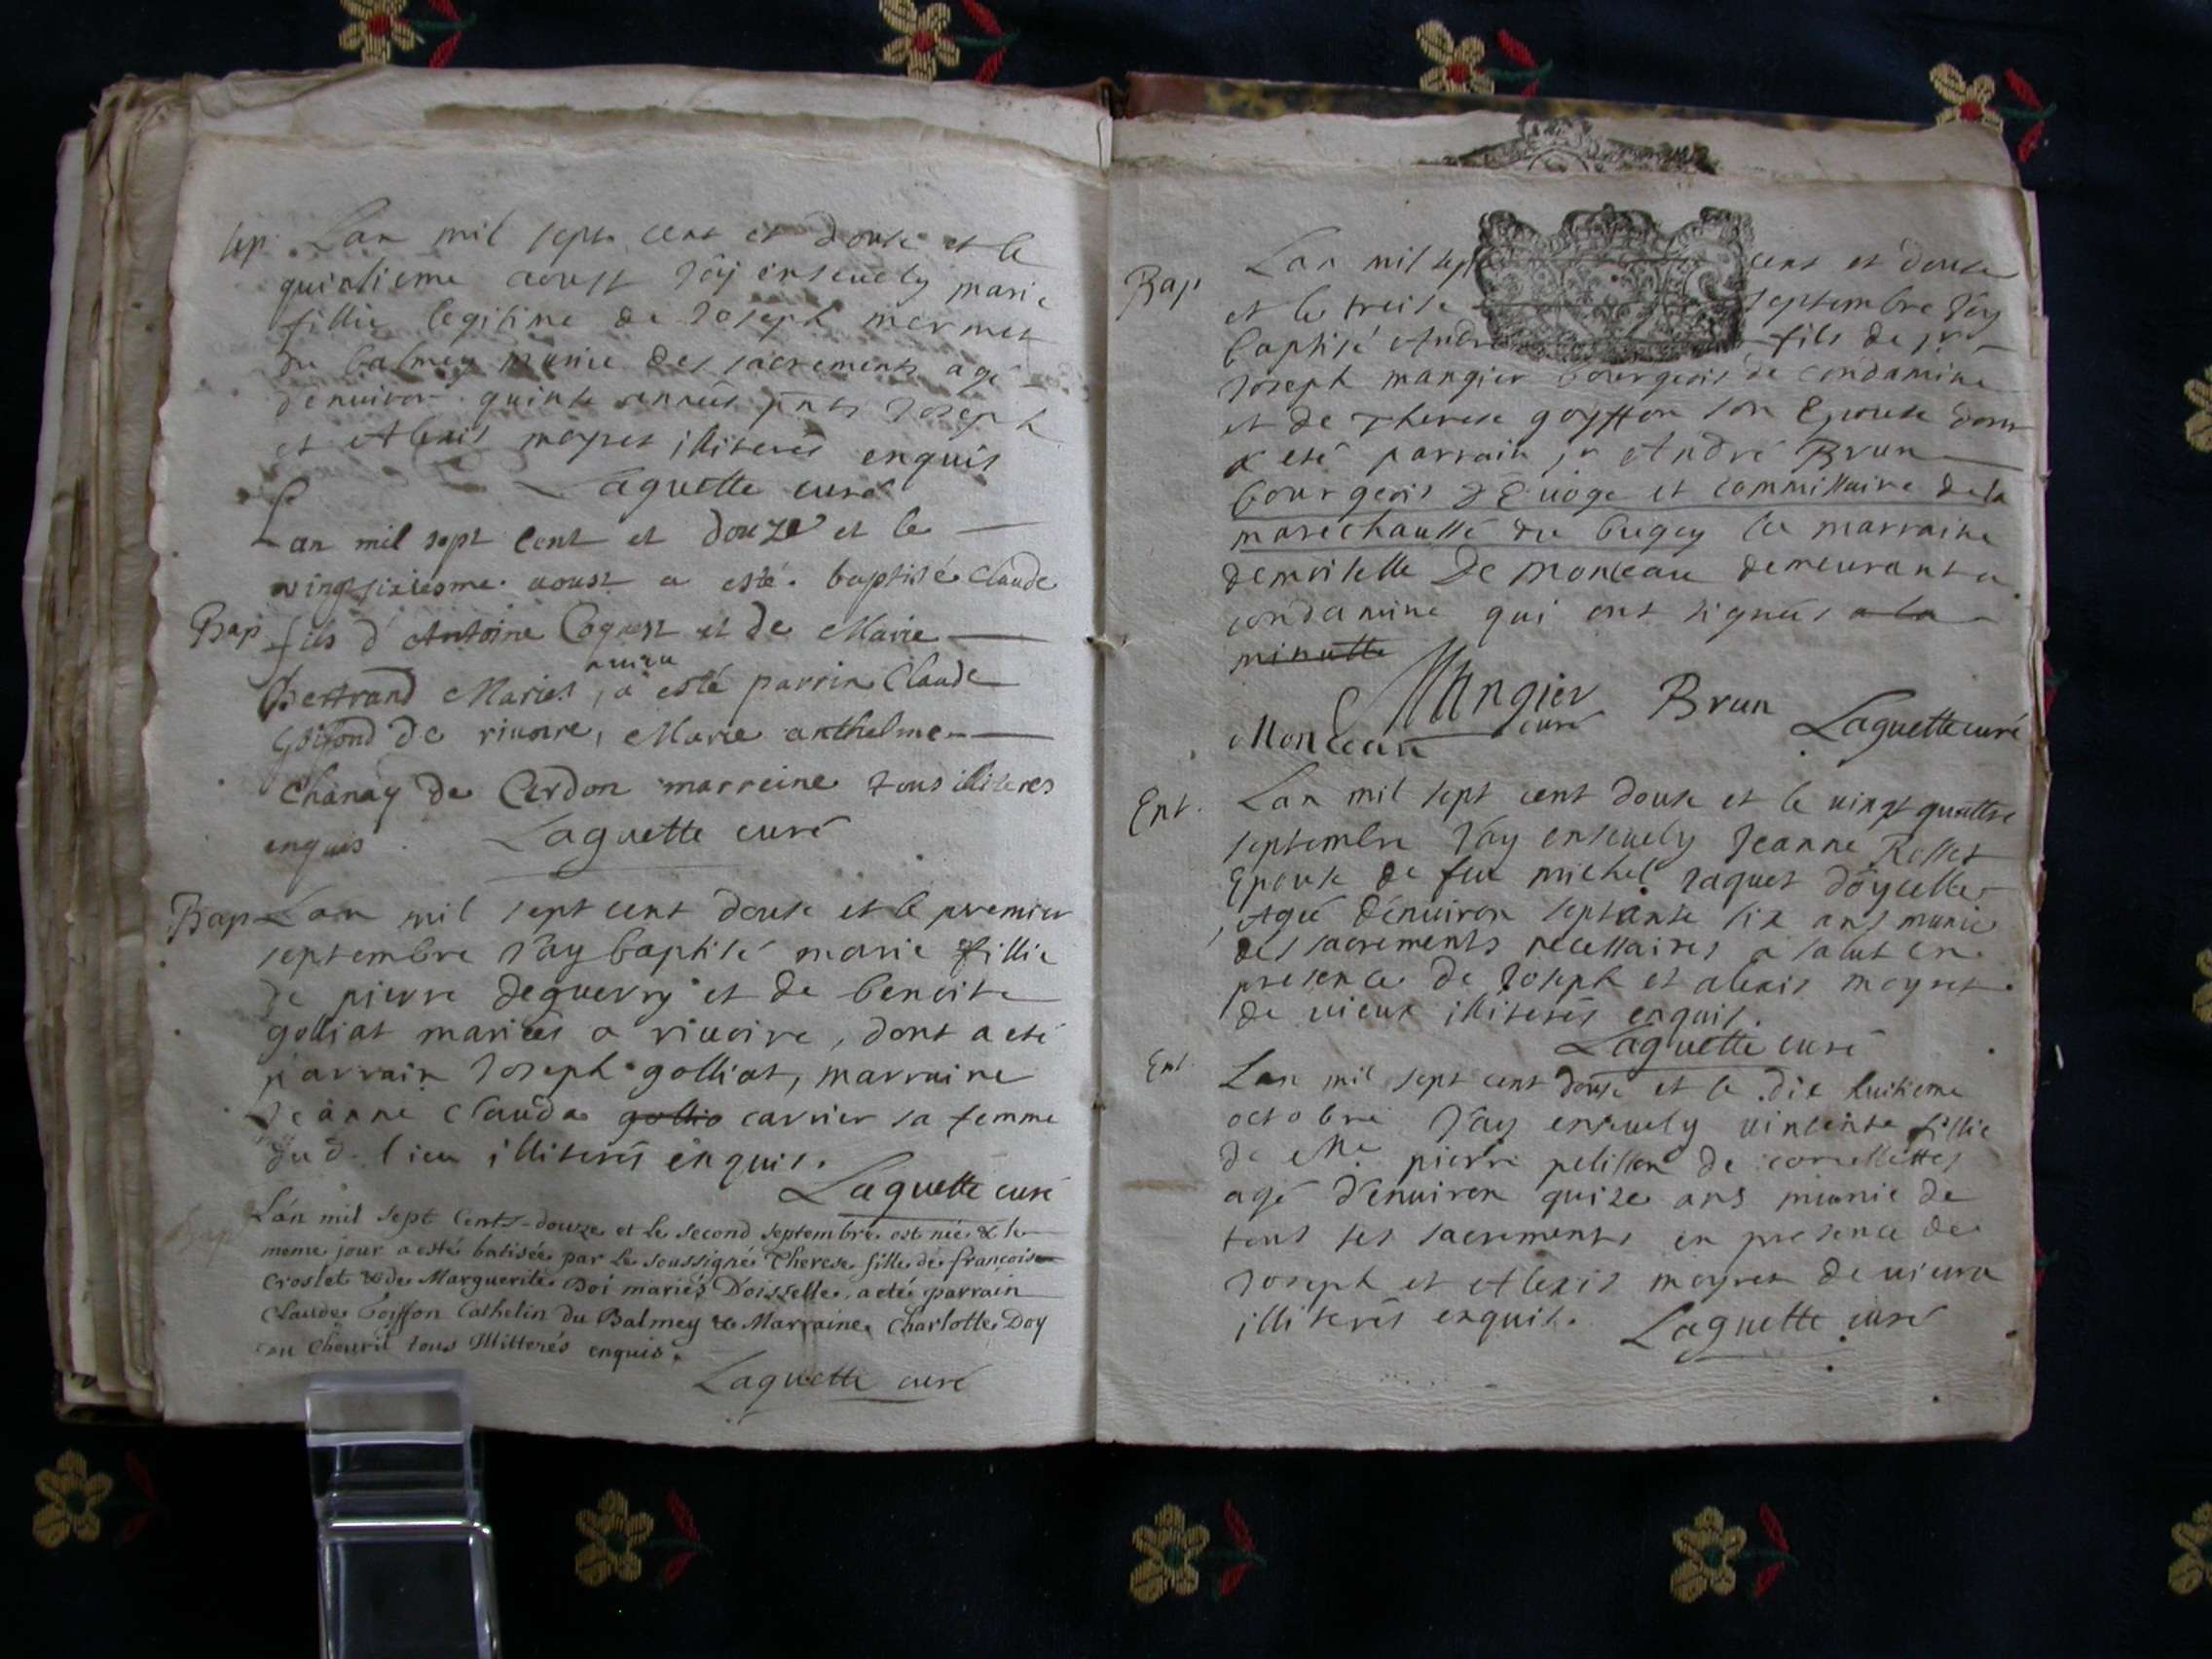 sep. Lan mil sept cent et douse et le
quinsieme aoust j'ay enseuely marie
fillie legitime de Joseph mermet
du balmey munie des sacrements agé
denuiron quinse années pnts Joseph
et Alexis moyret illiterés enquis
Laguette curé
Lan mil sept cent et douze et le
vingtsixiesme aoust a esté baptisé Claude
Bap fils d'Antoine Coquest et de Marie
Bertrand Mariés, a esté parrin Claude
de riuoire, Marie anthelme
Chanay de Cerdon marreine tous illiteres
enquis. Laguette curé
Bap Lan mil sept cent douse et le premier
septembre J'ay baptisé marie fillie
de pierre deguerry et de benoite
golliat mariés a riuoire, dont a eté
parrain Joseph golliat, marraine
Jeanne Clauda gollia carrier sa femme
dud. lieu illiterés enquis.
Laguette curé
Bap L'an mil sept Cents-douze et le second septembre est née & le
meme jour a esté batisée par le soussigné Therese fille de françois
Croslet & de Marguerite Doi mariés D'oisselle, a eté parrain
Claude Goiffon Cathelin du Balmey & Marraine Charlotte Doy
du Chouril tous Illitterés enquis.
Laguette curé
Bap Lan mil sept cent et douse
et le treise septembre J'ay
baptisé André fils de sr
Joseph mangier bourgeois de condamine
et de Therese goyffon son Epouse dont
a eté parrain sr André Brun
bourgeois d'Euoge et commissaire de la
marechaussé du bugey la marraine
demoiselle De monceau demeurant a
condamine qui ont signés a la
minutte
Mangier Brun Laguette curé
Monceau curé
Ent. Lan mil sept cent douse et le vingt quattre
septembre J'ay enseuely Jeanne Rosset
Epouse de feu michel Jaquet doycelle
Agée denuiron septante six ans munie
des sacrements necessaires a salut en
presence de Joseph et alexis moyret
de uieux illiterés enquis.
Laguette curé
Ent. Lan mil sept cent douse et le dix huitieme
octobre J'ay enseuely uincente fillie
de Me pierre pelisson de corcellettes
agé d'enuiron quize ans munie de
tous ses sacrements en presence de
Joseph et Alexis moyret de uieux
illiterés enquis. Laguette curé